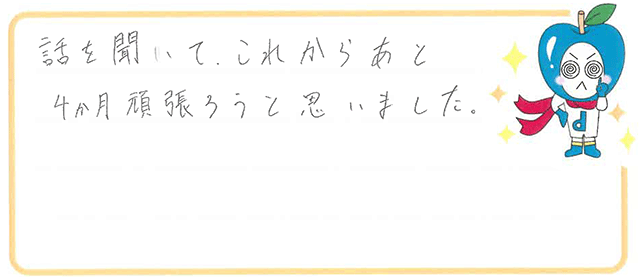 話を聞いて、これからあと
4か月頑張ろうと思いました。
d